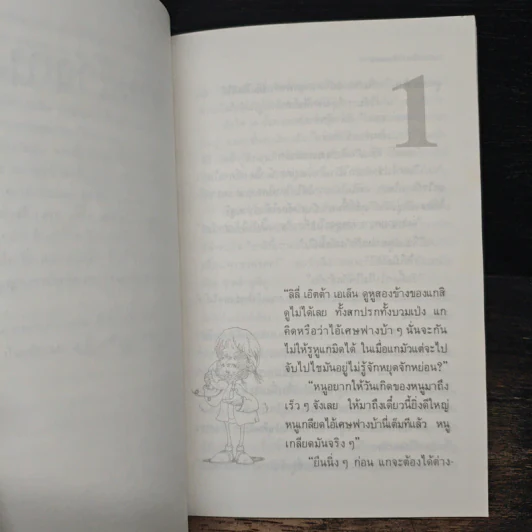 1
“ลิลี่ เอ็ตต้า เอเล็น ดูหูสองข้างของแกสิ
ดูไม่ได้เลย ทั้งสกปรกทั้งบวมเป่ง แก
คิดหรือว่าไอ้เศษฟางบ้า ๆ นั่นจะกัน
ไม่ให้รูหูแกมิดได้ ในเมื่อแกมัวแต่จะไป
จับไปไขมันอยู่ไม่รู้จักหยุดจักหย่อน?”
“หนูอยากให้วันเกิดของหนูมาถึง
เร็ว ๆ จังเลย ให้มาถึงเดี๋ยวนี้ยิ่งดีใหญ่
หนูเกลียดไอ้เศษฟางบ้านี่เต็มทีแล้ว หนู
เกลียดมันจริง ๆ”
“ยืนนิ่ง ๆ ก่อน แกจะต้องได้ต่าง-